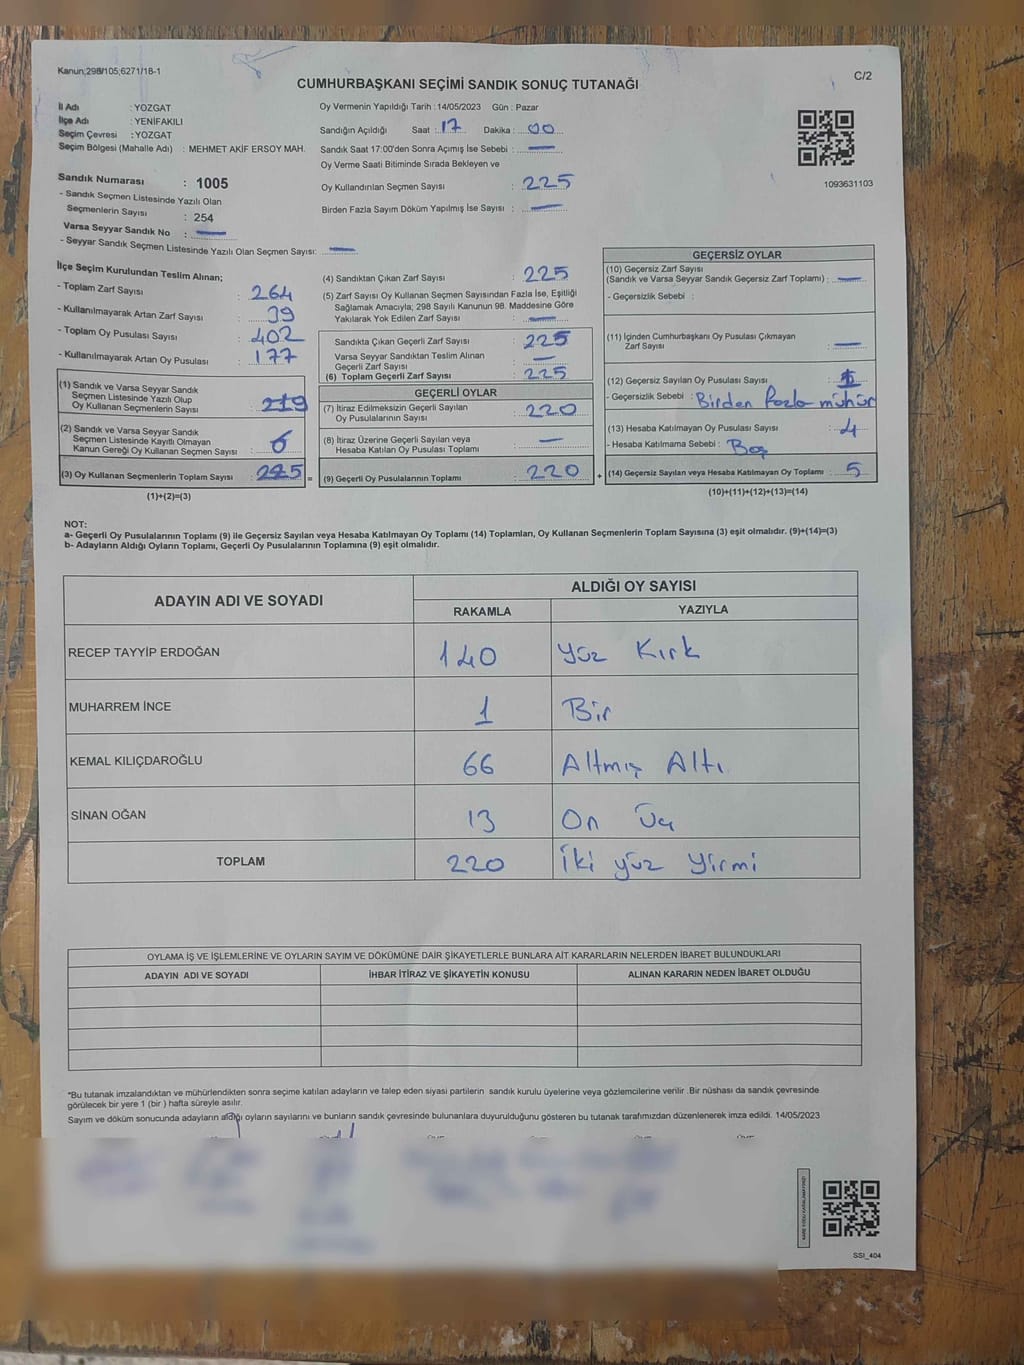 Kanun;298/105;6271/18-1
C/2
CUMHURBAŞKANI SEÇİMİ SANDIK SONUÇ TUTANAĞI
İl Adı : YOZGAT
İlçe Adı : YENİFAKILI
Seçim Çevresi : YOZGAT
Seçim Bölgesi (Mahalle Adı) : MEHMET AKİF ERSOY MAH.
Sandık Numarası : 1005
- Sandık Seçmen Listesinde Yazılı Olan
Seçmenlerin Sayısı : 254
Varsa Seyyar Sandık No :
- Seyyar Sandık Seçmen Listesinde Yazılı Olan Seçmen Sayısı:
Oy Vermenin Yapıldığı Tarih : 14/05/2023 Gün : Pazar
Sandığın Açıldığı Saat : 17 Dakika : 00
Sandık Saat 17:00'den Sonra Açımış İse Sebebi :
Oy Verme Saati Bitiminde Sırada Bekleyen ve
Oy Kullandırılan Seçmen Sayısı : 225
Birden Fazla Sayım Döküm Yapılmış İse Sayısı :
1093631103
İlçe Seçim Kurulundan Teslim Alınan;
- Toplam Zarf Sayısı : 264
- Kullanılmayarak Artan Zarf Sayısı : 39
- Toplam Oy Pusulası Sayısı : 402
- Kullanılmayarak Artan Oy Pusulası : 177
(1) Sandık ve Varsa Seyyar Sandık
Seçmen Listesinde Yazılı Olup
Oy Kullanan Seçmenlerin Sayısı : 219
(2) Sandık ve Varsa Seyyar Sandık
Seçmen Listesinde Kayıtlı Olmayan
Kanun Gereği Oy Kullanan Seçmen Sayısı : 6
(3) Oy Kullanan Seçmenlerin Toplam Sayısı : 225 =
(1)+(2)=(3)
(4) Sandıktan Çıkan Zarf Sayısı : 225
(5) Zarf Sayısı Oy Kullanan Seçmen Sayısından Fazla İse, Eşitliği
Sağlamak Amacıyla; 298 Sayılı Kanunun 98. Maddesine Göre
Yakılarak Yok Edilen Zarf Sayısı :
Sandıkta Çıkan Geçerli Zarf Sayısı : 225
Varsa Seyyar Sandıktan Teslim Alınan
Geçerli Zarf Sayısı :
(6) Toplam Geçerli Zarf Sayısı : 225
GEÇERLİ OYLAR
(7) İtiraz Edilmeksizin Geçerli Sayılan
Oy Pusulalarının Sayısı : 220
(8) İtiraz Üzerine Geçerli Sayılan veya
Hesaba Katılan Oy Pusulası Toplamı :
(9) Geçerli Oy Pusulalarının Toplamı : 220 +
GEÇERSİZ OYLAR
(10) Geçersiz Zarf Sayısı
(Sandık ve Varsa Seyyar Sandık Geçersiz Zarf Toplamı) :
- Geçersizlik Sebebi :
(11) İçinden Cumhurbaşkanı Oy Pusulası Çıkmayan
Zarf Sayısı :
(12) Geçersiz Sayılan Oy Pusulası Sayısı : 1
- Geçersizlik Sebebi : Birden fazla mühür
(13) Hesaba Katılmayan Oy Pusulası Sayısı : 4
- Hesaba Katılmama Sebebi : Boş
(14) Geçersiz Sayılan veya Hesaba Katılmayan Oy Toplamı : 5
(10)+(11)+(12)+(13)=(14)
NOT:
a- Geçerli Oy Pusulalarının Toplamı (9) ile Geçersiz Sayılan veya Hesaba Katılmayan Oy Toplamı (14) Toplamları, Oy Kullanan Seçmenlerin Toplam Sayısına (3) eşit olmalıdır. (9)+(14)=(3)
b- Adayların Aldığı Oyların Toplamı, Geçerli Oy Pusulalarının Toplamına (9) eşit olmalıdır.
ADAYIN ADI VE SOYADI
ALDIĞI OY SAYISI
RAKAMLA YAZIYLA
RECEP TAYYİP ERDOĞAN 140 Yüz Kırk
MUHARREM İNCE 1 Bir
KEMAL KILIÇDAROĞLU 66 Altmış Altı
SİNAN OĞAN 13 On Üç
TOPLAM 220 İki yüz Yirmi
OYLAMA İŞ VE İŞLEMLERİNE VE OYLARIN SAYIM VE DÖKÜMÜNE DAİR ŞİKAYETLERLE BUNLARA AİT KARARLARIN NELERDEN İBARET BULUNDUKLARI
ADAYIN ADI VE SOYADI İHBAR İTİRAZ VE ŞİKAYETİN KONUSU ALINAN KARARIN NEDEN İBARET OLDUĞU
*Bu tutanak imzalandıktan ve mühürlendikten sonra seçime katılan adayların ve talep eden siyasi partilerin sandık kurulu üyelerine veya gözlemcilerine verilir .Bir nüshası da sandık çevresinde
görülecek bir yere 1 (bir ) hafta süreyle asılır.
Sayım ve döküm sonucunda adayların aldığı oyların sayılarını ve bunların sandık çevresinde bulunanlara duyurulduğunu gösteren bu tutanak tarafımızdan düzenlenerek imza edildi. 14/05/2023
SSI_404